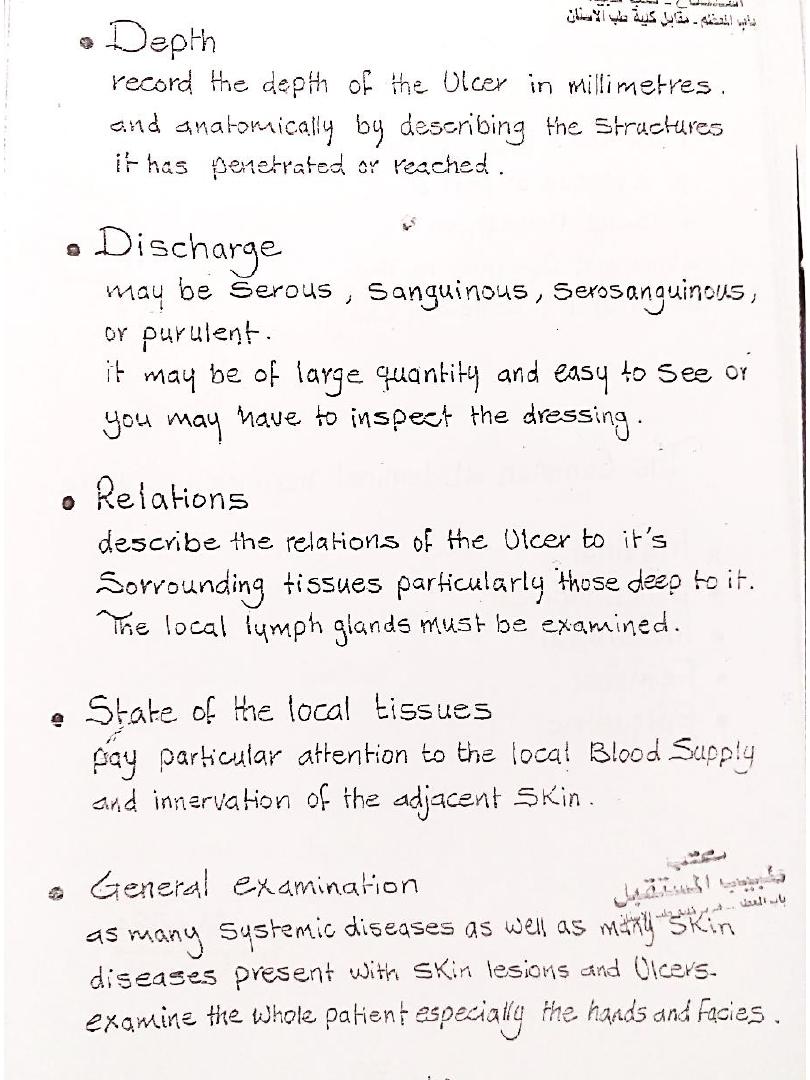 باب المعظم - مقابل كلية طب الاسنان
• Depth
record the depth of the Ulcer in millimetres.
and anatomically by describing the structures
it has penetrated or reached.
• Discharge
may be serous, sanguinous, serosanguinous,
or purulent.
it may be of large quantity and easy to see or
you may have to inspect the dressing.
• Relations
describe the relations of the Ulcer to it's
Sorrounding tissues particularly those deep to it.
The local lymph glands must be examined.
• State of the local tissues
pay particular attention to the local Blood Supply
and innervation of the adjacent Skin.
• General examination
مكتب
طبيب المستقبل
as many systemic diseases as well as many Skin
diseases present with skin lesions and Ulcers.
examine the whole patient especially the hands and Facies.